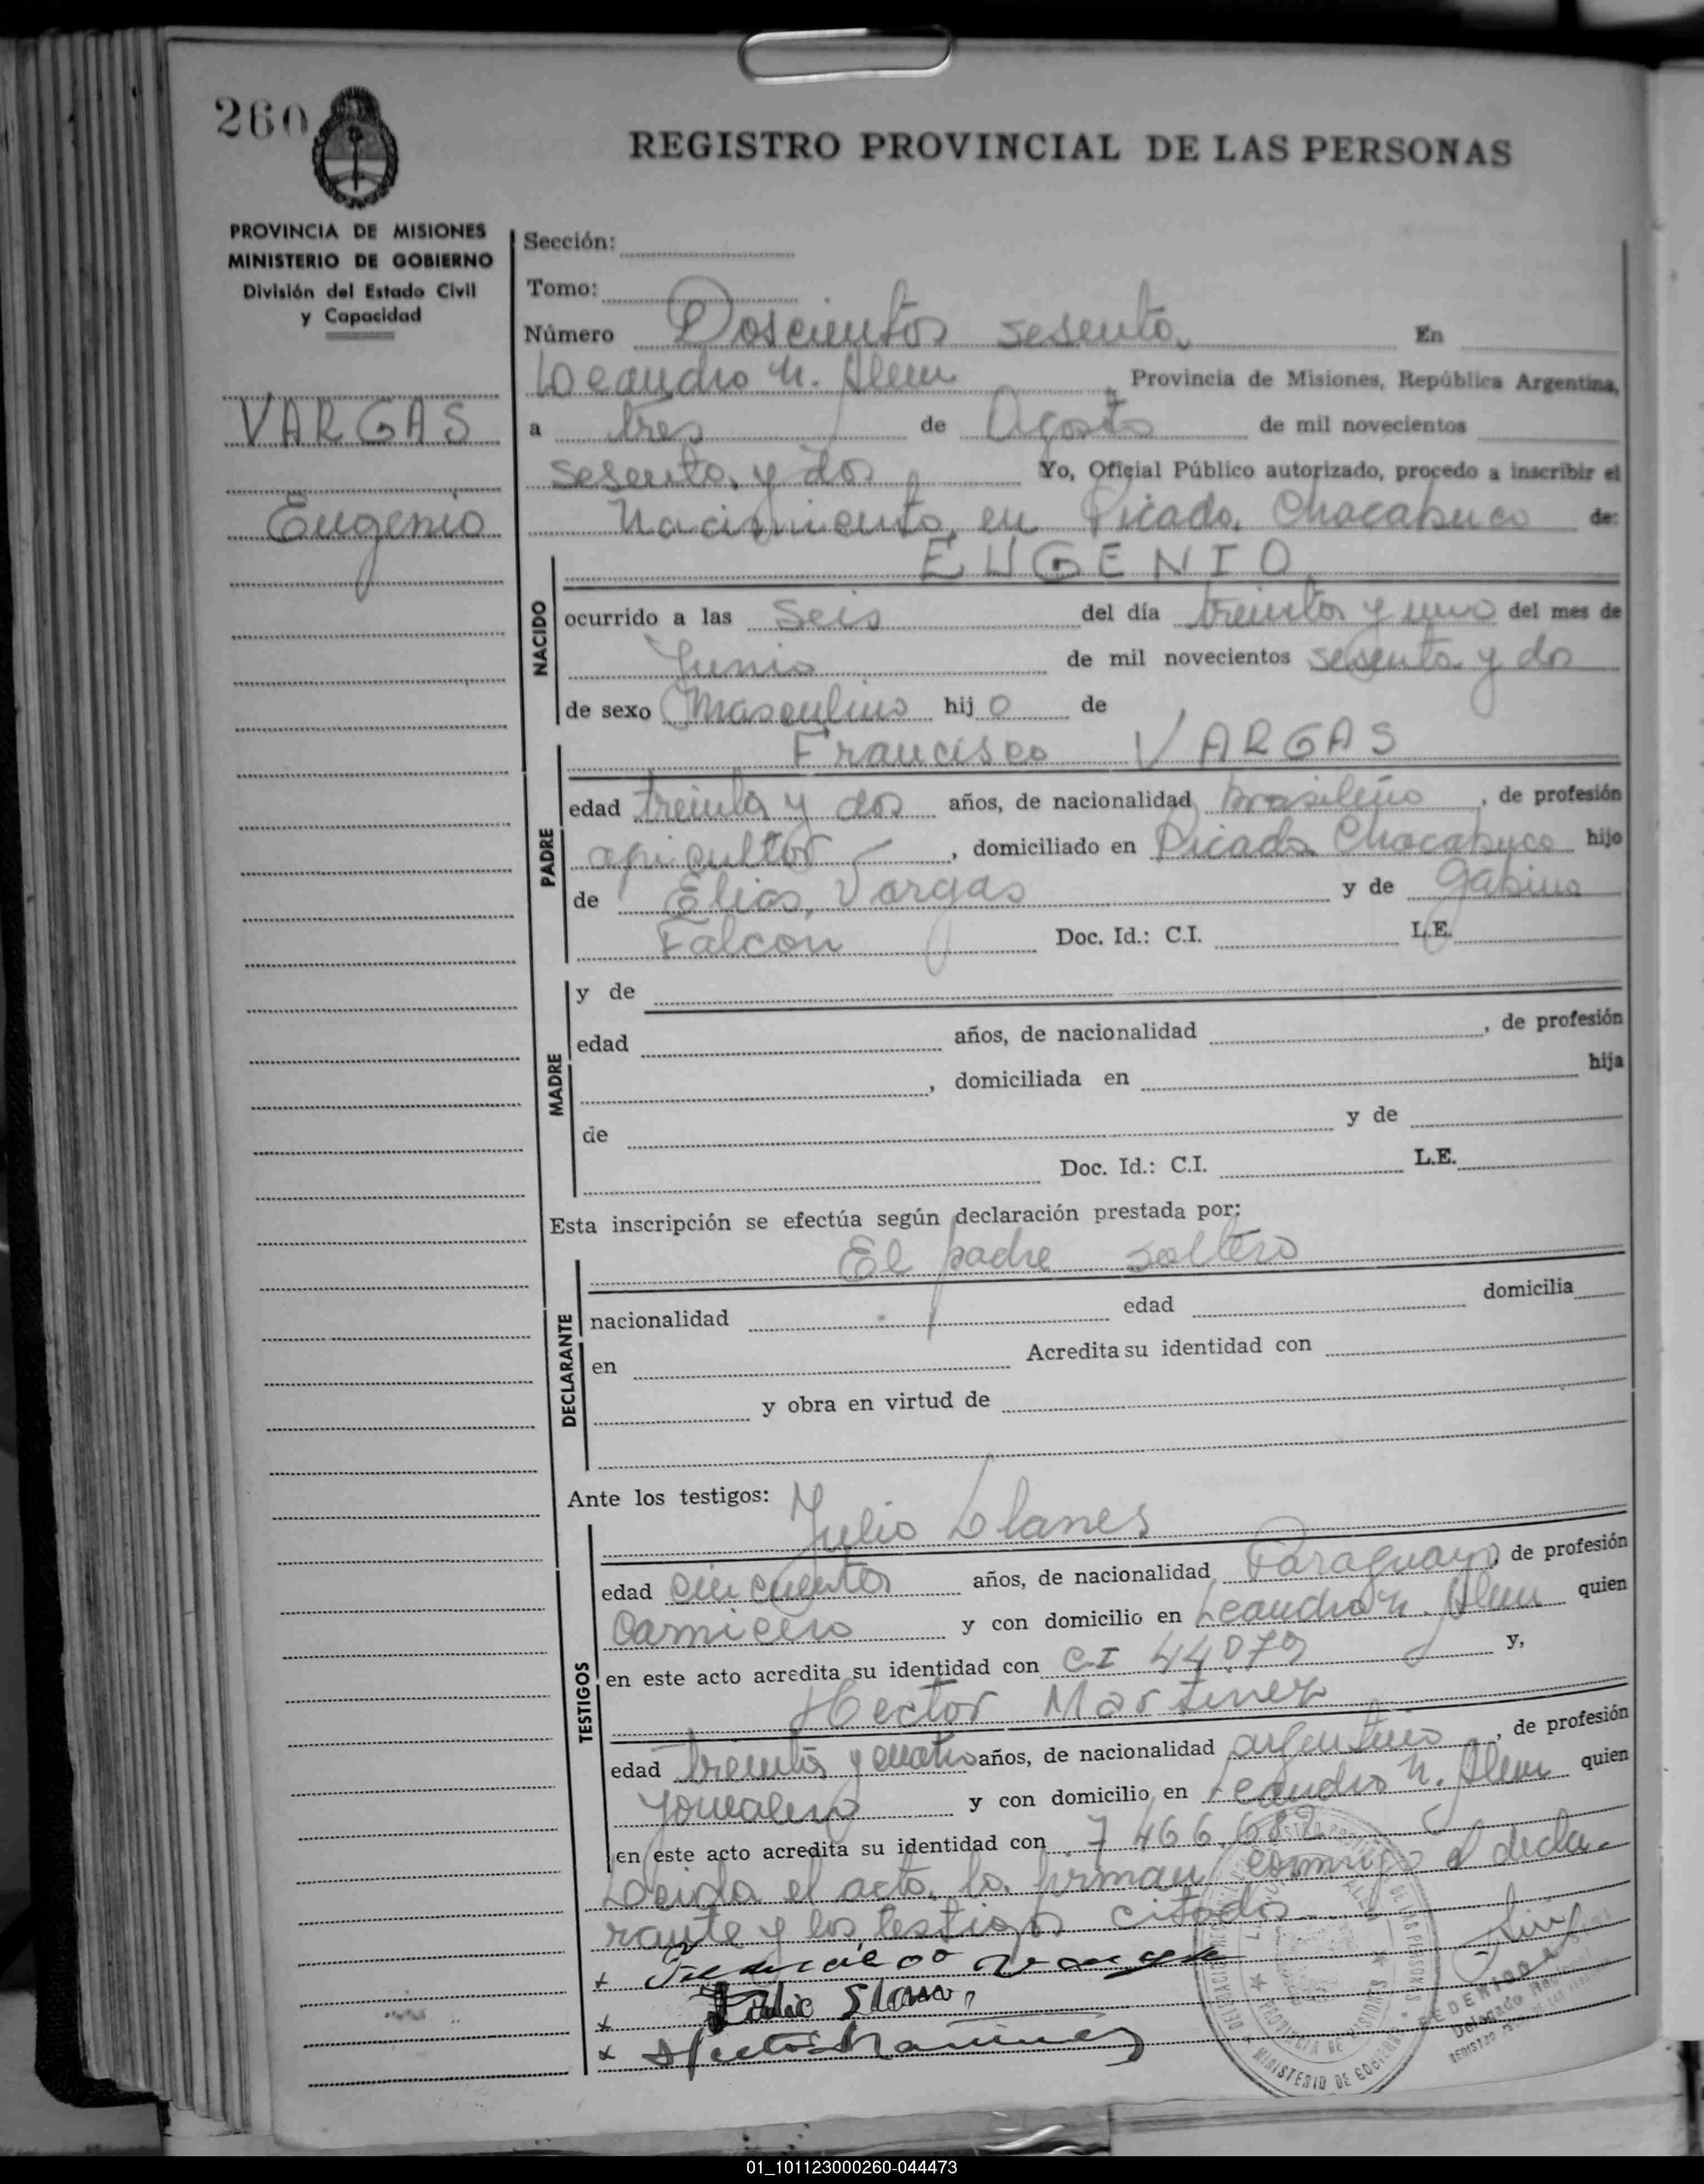 260
REGISTRO PROVINCIAL DE LAS PERSONAS
PROVINCIA DE MISIONES
MINISTERIO DE GOBIERNO
División del Estado Civil
y Capacidad
VARGAS
Eugenio
Sección:
Tomo:
Número Doscientos sesenta En
Leandro N. Alem, Provincia de Misiones, República Argentina,
a tres de Agosto de mil novecientos
sesenta y dos Yo, Oficial Público autorizado, procedo a inscribir el
Nacimiento en Picada Chacabuco de:
EUGENIO
NACIDO
ocurrido a las seis del día treinta y uno del mes de
Junio de mil novecientos sesenta y dos
de sexo Masculino hijo de
Francisco VARGAS
PADRE
edad treinta y dos años, de nacionalidad brasileño, de profesión
agricultor, domiciliado en Picada Chacabuco hijo
de Elias Vargas y de Gabina
Falcon Doc. Id.: C.I. L.E.
MADRE
y de
edad años, de nacionalidad , de profesión
, domiciliada en hija
de y de
Doc. Id.: C.I. L.E.
Esta inscripción se efectúa según declaración prestada por:
El padre soltero
DECLARANTE
nacionalidad edad domicilia
en Acredita su identidad con
y obra en virtud de
Ante los testigos:
Julio Llanes
TESTIGOS
edad cincuenta años, de nacionalidad Paraguayo, de profesión
Carnicero y con domicilio en Leandro N. Alem quien
en este acto acredita su identidad con C-I 44079 y,
Hector Martinez
edad treinta y cuatro años, de nacionalidad argentino, de profesión
Jornalero y con domicilio en Leandro N. Alem quien
en este acto acredita su identidad con 7 466.682
Leida el acta la firman conmigo el decla-
rante y los testigos citados
x
x Julio Llanes
x Hector Martinez
MINISTERIO DE GOBIERNO
PROVINCIA DE MISIONES
DE LAS PERSONAS
Delegado
01_101123000260-044473